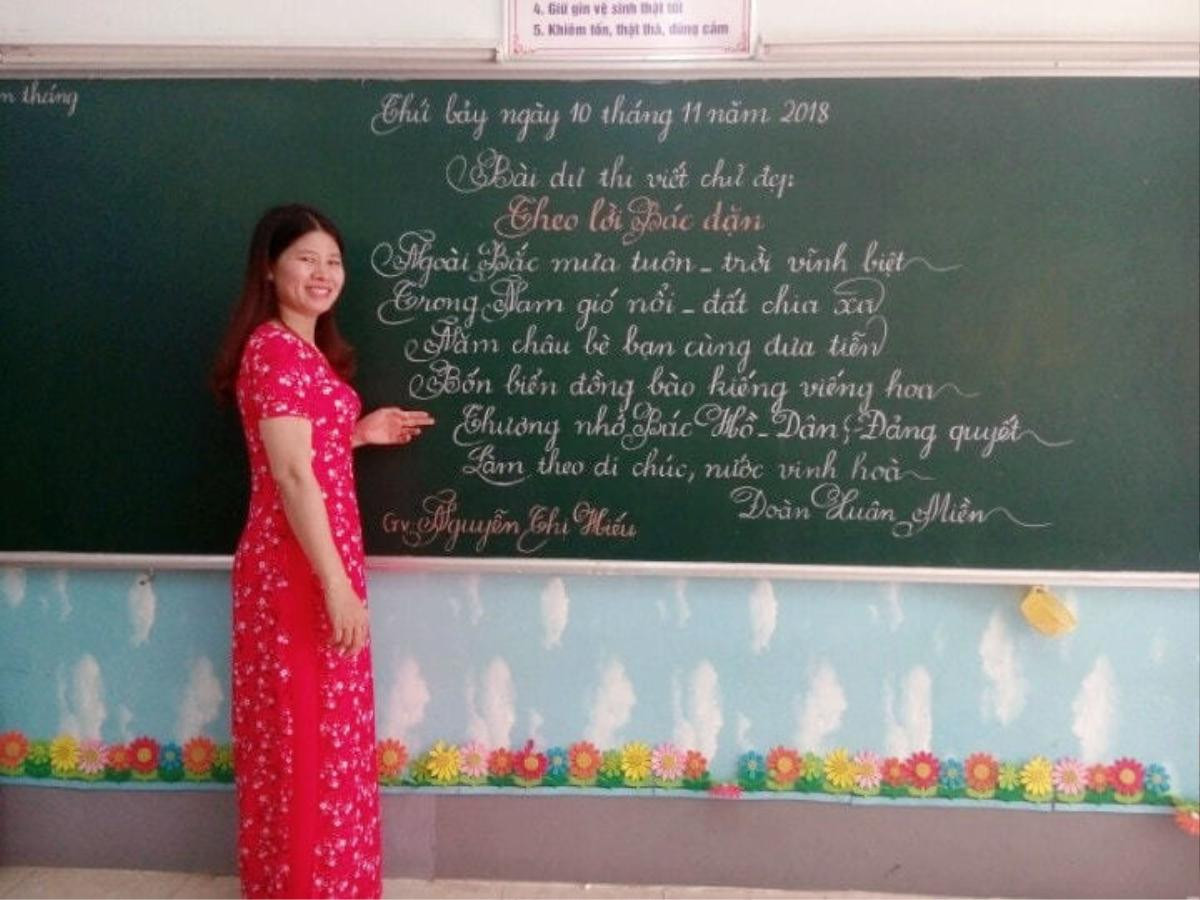 4. Giữ gìn vệ sinh thật tốt
5. Khiêm tốn, thật thà, dũng cảm
tháng
Thứ bảy ngày 10 tháng 11 năm 2018
Bài dự thi viết chữ đẹp:
Theo lời Bác dặn
Ngoài Bắc mưa tuôn - trời vĩnh biệt
Trong Nam gió nổi - đất chia xa
Năm châu bè bạn cùng đưa tiễn
Bốn biển đồng bào kiếng viếng hoa
Thương nhớ Bác Hồ - Dân; - Đảng quyết
Làm theo di chúc, nước vinh hoà
Đoàn Xuân Miền
Gv: Nguyễn Thị Hiếu